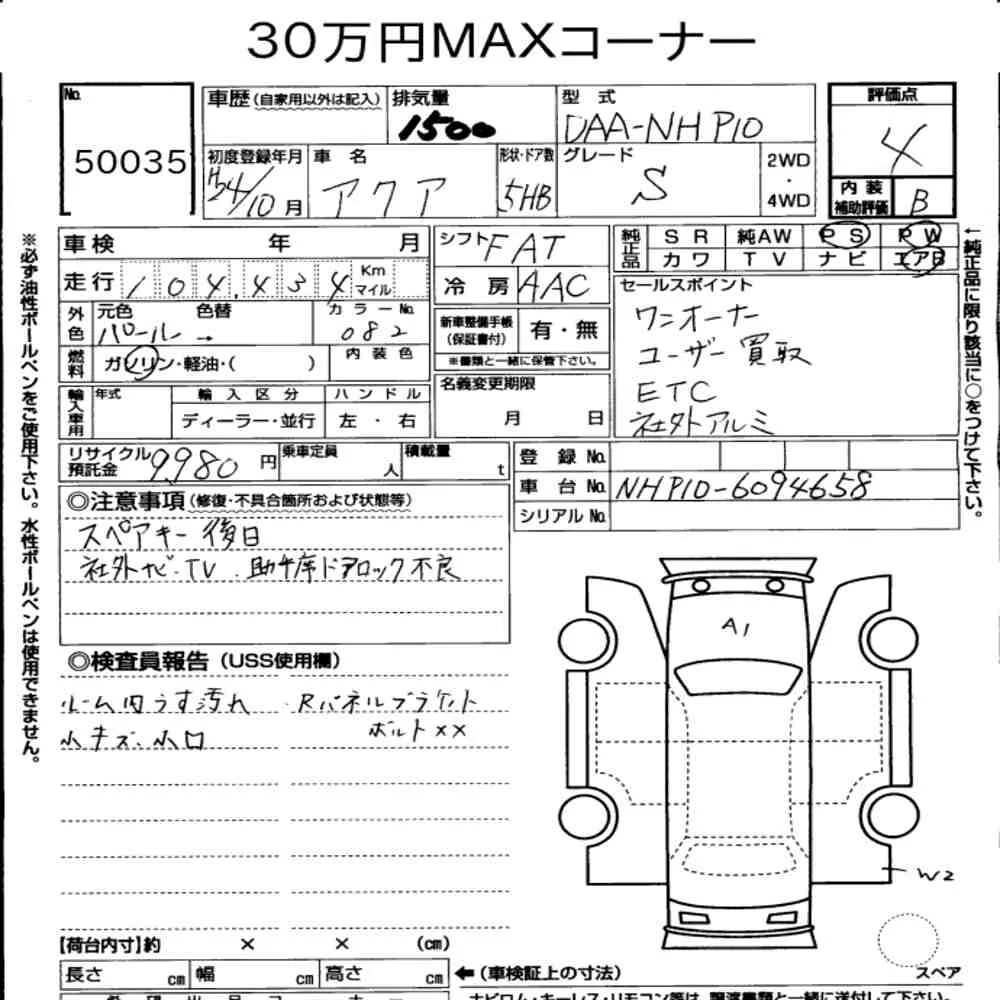 30万円MAXコーナー
No.
50035
車歴(自家用以外は記入)
排気量
1500
型式
DAA-NHP10
評価点
4
初度登録年月
H24/10月
車名
アクア
形状・ドア数
5HB
グレード
S
2WD
・
4WD
内装
補助評価
B
車検 年 月
シフト FAT
純正品
SR 純AW PS PW
カワ TV ナビ エアB
走行 104,434 Km マイル
冷房 AAC
セールスポイント
ワンオーナー
ユーザー買取
ETC
社外アルミ
外色
元色 色替 カラーNo.
パール → 082
新車整備手帳
(保証書付)
有・無
※書類と一緒に保管下さい。
燃料
ガソリン・軽油・( )
内装色
名義変更期限
月 日
輸入車用
年式 輸入区分 ハンドル
ディーラー・並行 左・右
リサイクル
預託金
9980円
乗車定員 人
積載量 t
登録No.
車台No. NHP10-6094658
シリアルNo.
◎注意事項(修復・不具合箇所および状態等)
スペアキー後日
社外ナビ・TV. 助手席ドアロック不良
◎検査員報告(USS使用欄)
ルーム内うす汚れ
小キズ、小凹
Rパネルブラケット
ボルト××
A1
W2
スペア
【荷台内寸】約 × × (cm)
長さ cm 幅 cm 高さ cm
←(車検証上の寸法)
※必ず油性ボールペンをご使用下さい。水性ボールペンは使用できません。
←純正品に限り該当に○をつけて下さい。